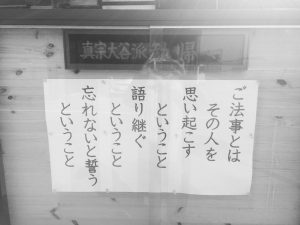 真宗大谷派
ご法事とは
その人を
思い起こす
ということ
語り継ぐ
ということ
忘れないと誓う
ということ